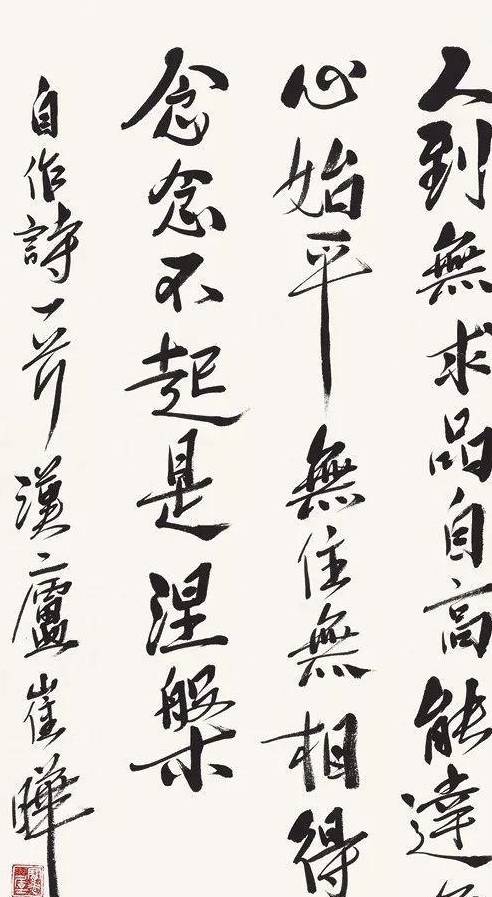 人到無求品自高能達
心始平無住無相得
念念不起是涅槃
自作詩一芥漢廬崔曄